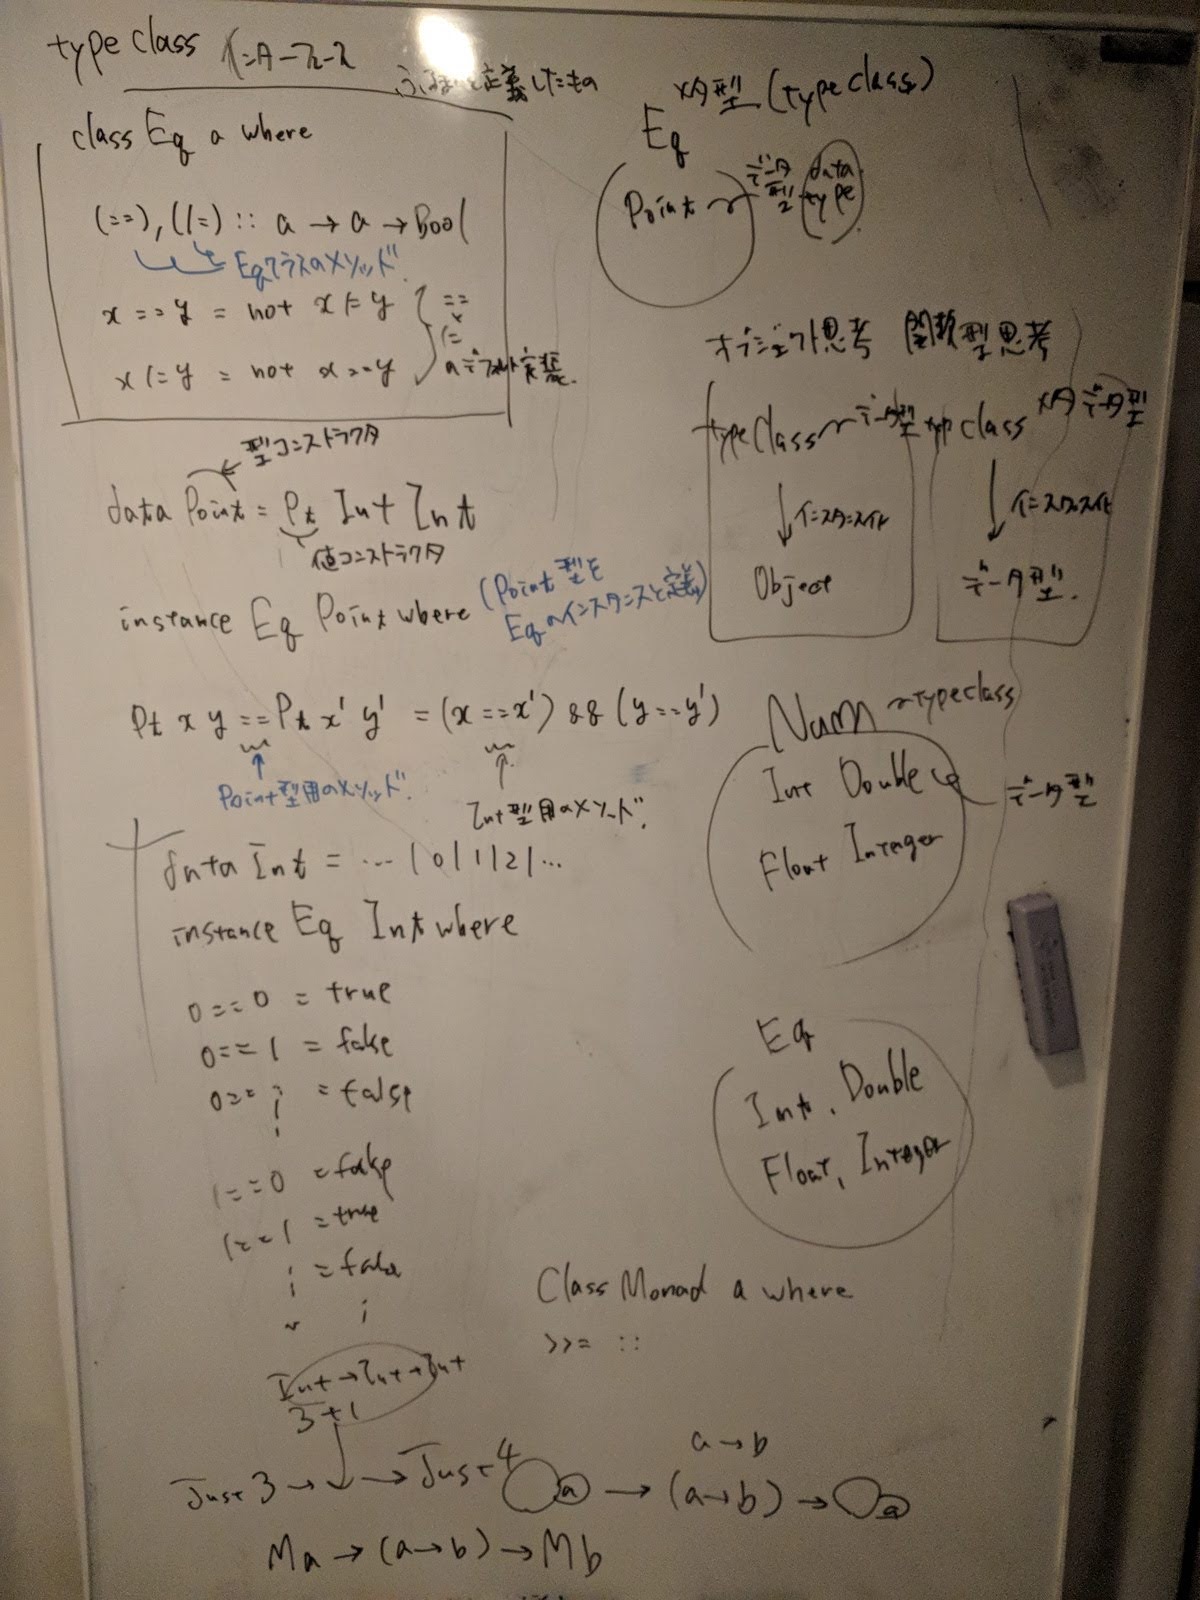 typeclass インターフェース
ふるまいを定義したもの
class Eq a where
(==), (/=) :: a → a → Bool
Eqクラスのメソッド
x == y = not x /= y
x /= y = not x == y
==
/=
のデフォルト定義.
型コンストラクタ
data Point = Pt Int Int
値コンストラクタ
instance Eq Point where
(Point型を
Eqのインスタンスと定義)
Pt x y == Pt x' y' = (x == x') && (y == y')
Point型用のメソッド.
Int型用のメソッド.
data Int = … | 0 | 1 | 2 | …
instance Eq Int where
0 == 0 = true
0 == 1 = false
0 == = false
1 == 0 = false
1 == 1 = true
= false
Int → Int → Int
3 + 1
Just 3 → → Just 4
Ma → (a → b) → Mb
メタ型 (typeclass)
Eq
Point
データ型
data type
オブジェクト思考 関数型思考
typeclass データ型
インスタンス化
Object
typeclass メタデータ型
インスタンス化
データ型.
Num typeclass
Int Double
Float Integer
データ型
Eq
Int, Double
Float, Integer
Class Monad a where
>>= ::
a → b
a → (a → b) → a